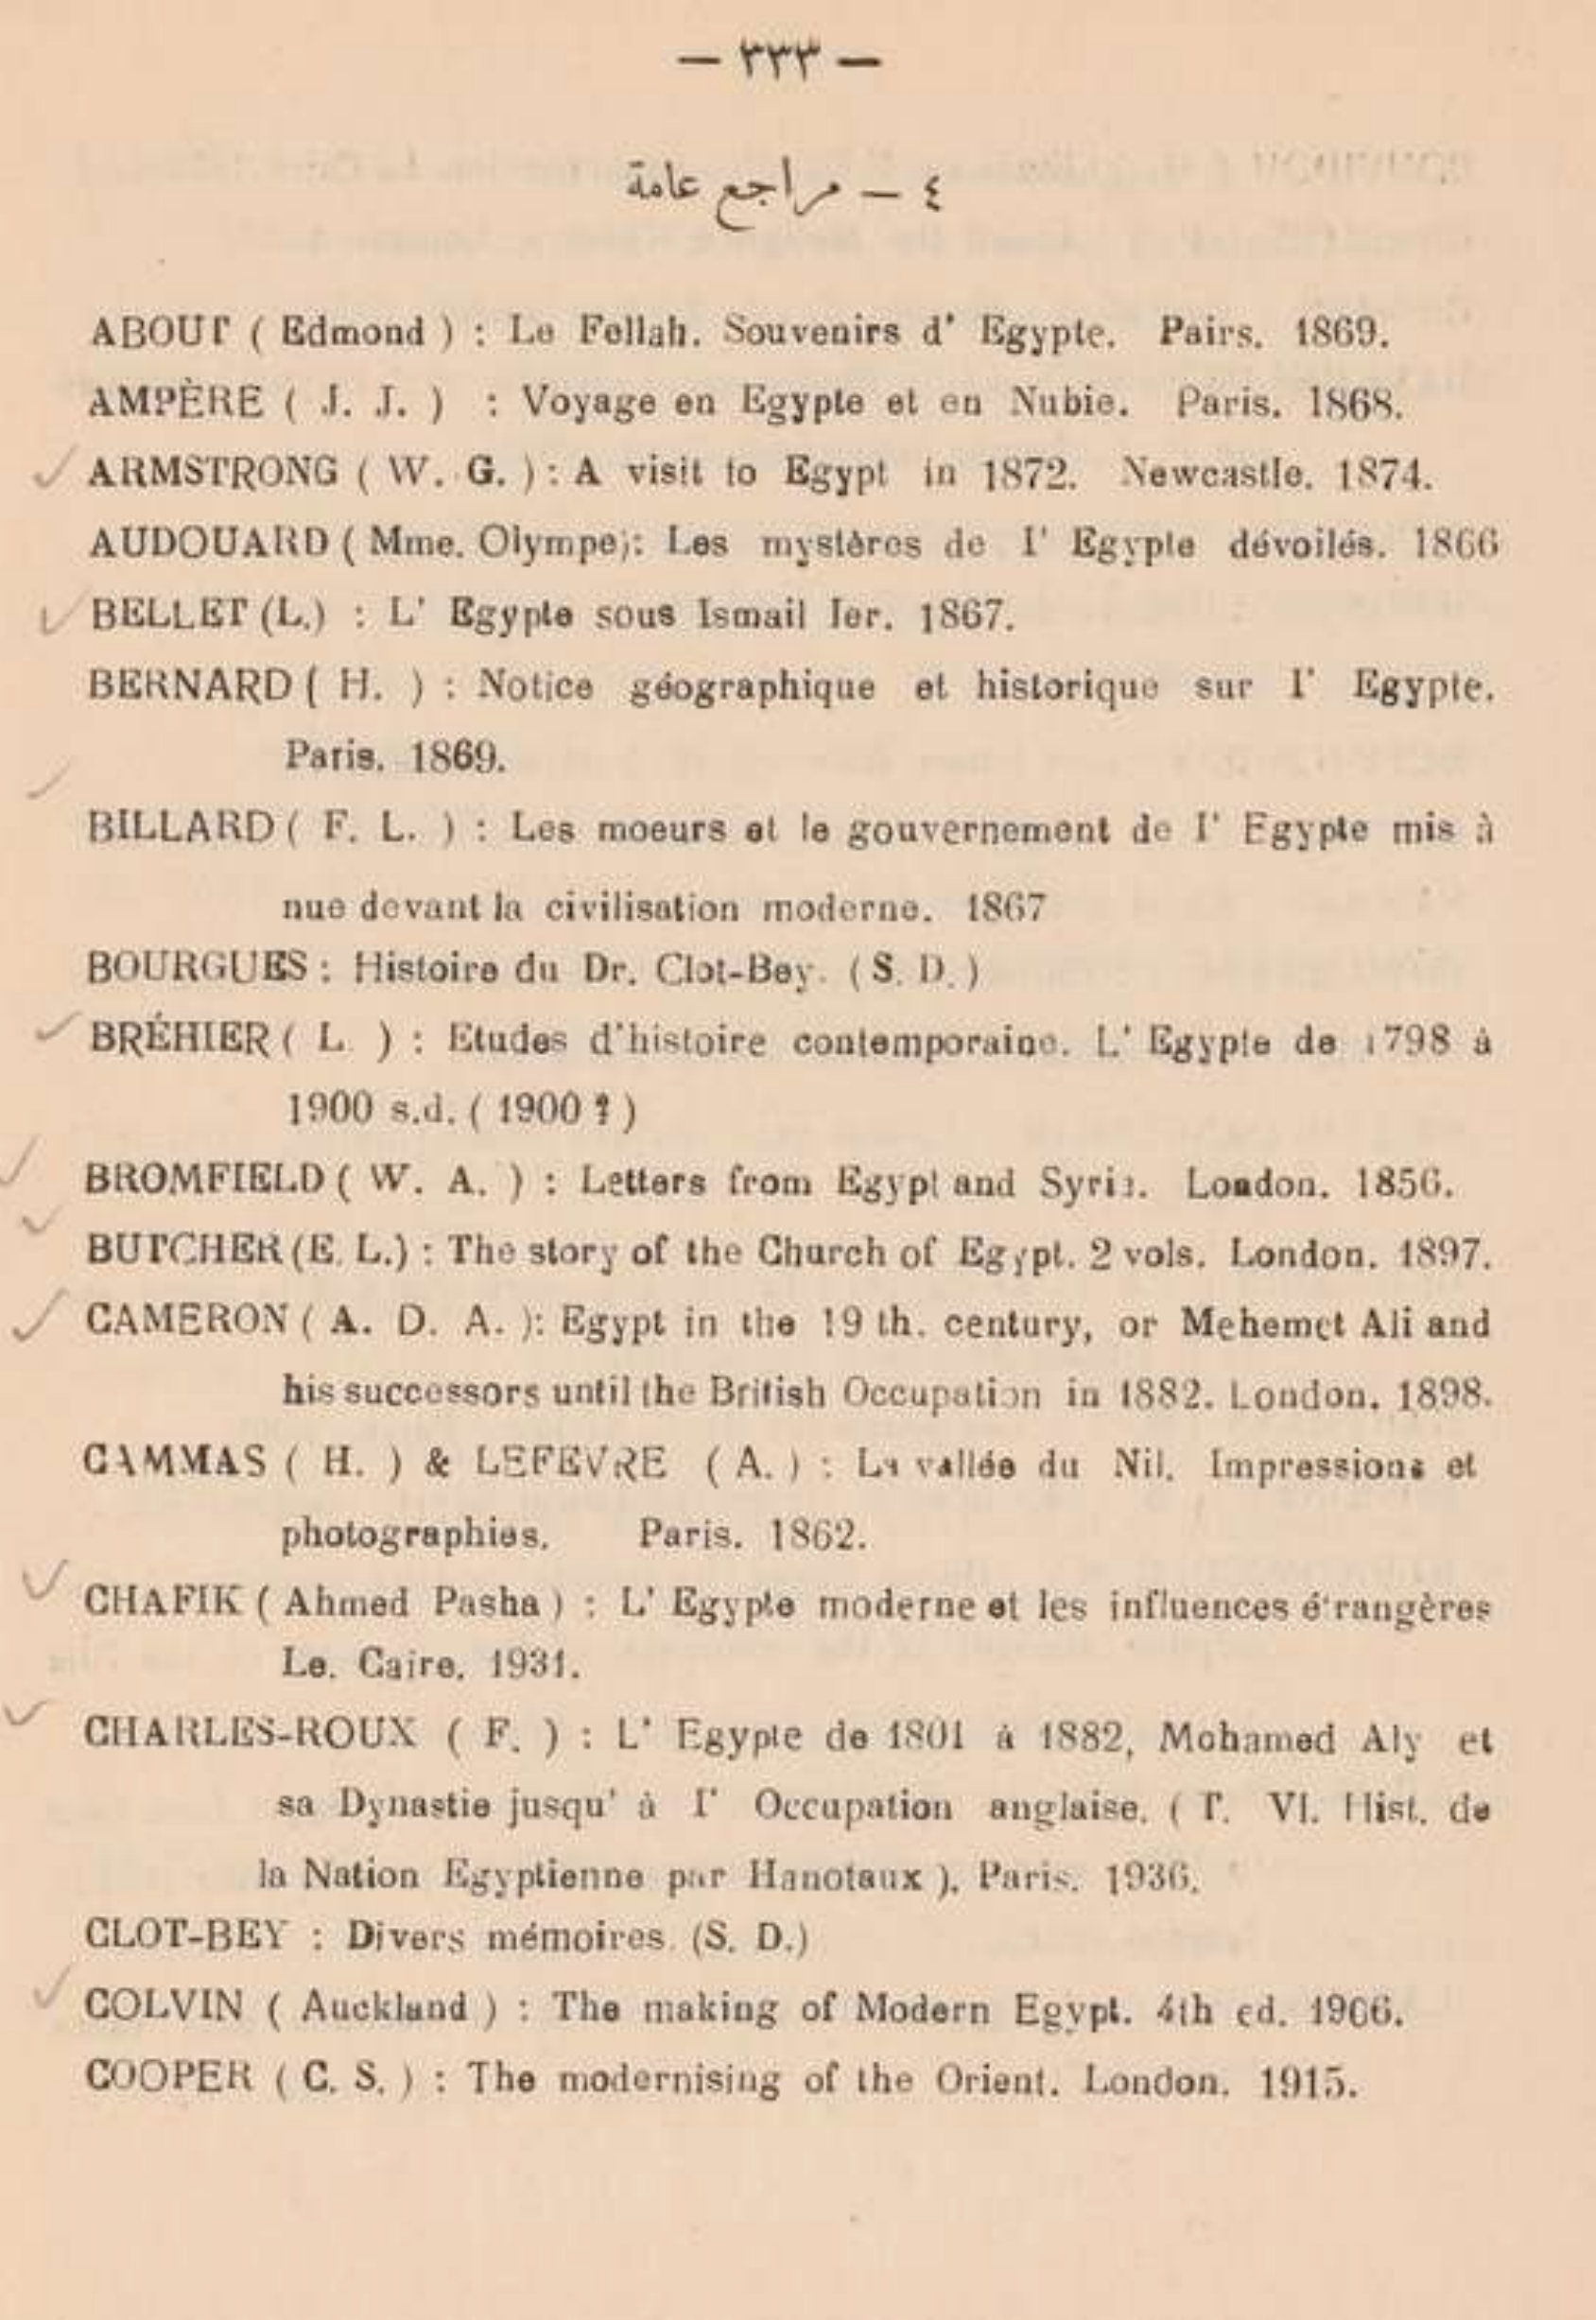 — ٣٣٣ —
٤ — مراجع عامة
ABOUT ( Edmond ) : Le Fellah. Souvenirs d' Egypte. Pairs. 1869.
AMPÈRE ( J. J. ) : Voyage en Egypte et en Nubie. Paris. 1868.
ARMSTRONG ( W. G. ) : A visit to Egypt in 1872. Newcastle. 1874.
AUDOUARD ( Mme. Olympe): Les mystères de l' Egypte dévoilés. 1866
BELLET (L.) : L' Egypte sous Ismail Ier. 1867.
BERNARD ( H. ) : Notice géographique et historique sur l' Egypte.
Paris. 1869.
BILLARD ( F. L. ) : Les moeurs et le gouvernement de l' Egypte mis à
nue devant la civilisation moderne. 1867
BOURGUES : Histoire du Dr. Clot-Bey. ( S. D. )
BRÉHIER ( L. ) : Etudes d'histoire contemporaine. L' Egypte de 1798 à
1900 s.d. ( 1900 ? )
BROMFIELD ( W. A. ) : Letters from Egypt and Syria. London. 1856.
BUTCHER (E. L.) : The story of the Church of Egypt. 2 vols. London. 1897.
CAMERON ( A. D. A. ): Egypt in the 19 th. century, or Mehemet Ali and
his successors until the British Occupation in 1882. London. 1898.
CAMMAS ( H. ) & LEFEVRE ( A. ) : La vallée du Nil. Impressions et
photographies. Paris. 1862.
CHAFIK ( Ahmed Pasha ) : L' Egypte moderne et les influences étrangères
Le. Caire. 1931.
CHARLES-ROUX ( F. ) : L' Egypte de 1801 à 1882, Mohamed Aly et
sa Dynastie jusqu' à l' Occupation anglaise. ( T. VI. Hist. de
la Nation Egyptienne par Hanotaux ). Paris. 1936.
CLOT-BEY : Divers mémoires. (S. D.)
COLVIN ( Auckland ) : The making of Modern Egypt. 4th ed. 1906.
COOPER ( C. S. ) : The modernising of the Orient. London. 1915.